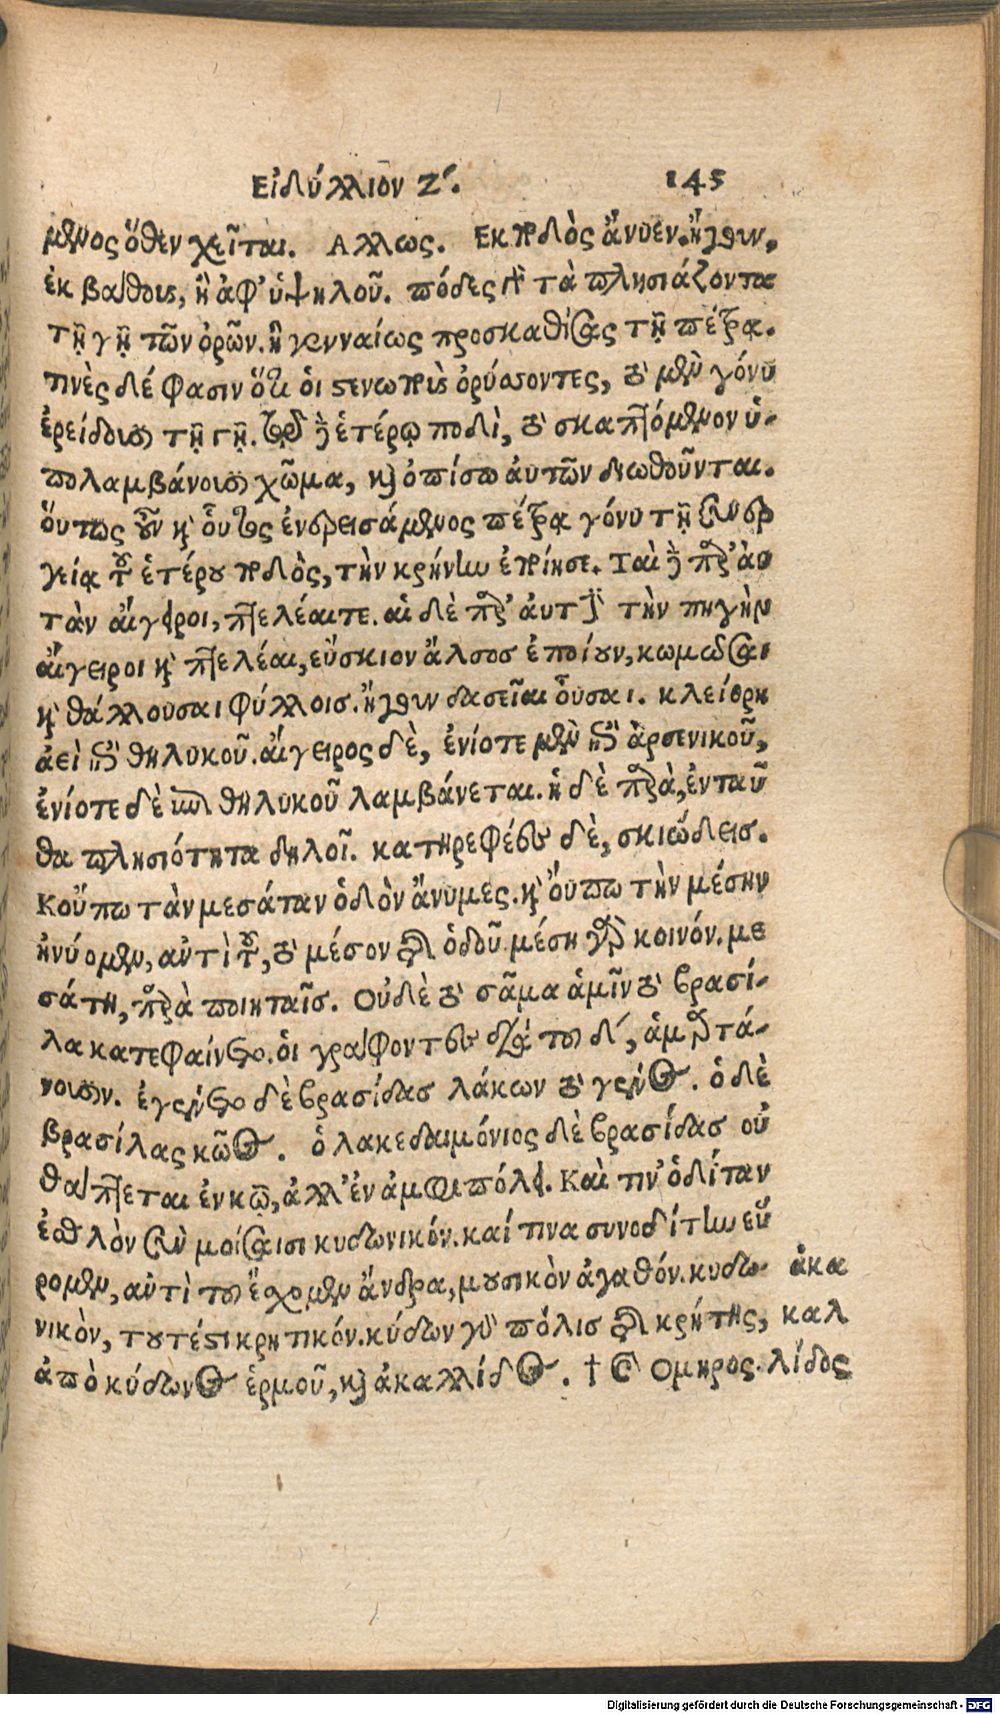 Εἰδύλλιον Ζ´. 145
μενος ὅθεν χεῖται. Αλλως. Εκ ποδὸς ἄνυεν. ἤγουν,
ἐκ βάθους, ἢ ἀφ’ ὑψηλοῦ. πόδες γὰρ τὰ πλησιάζοντα
τῇ γῇ τῶν ὀρῶν. ἢ γενναίως προσκαθίσας τῇ πέτρᾳ.
τινὲς δέ φασιν ὅτι οἱ στενωποὺς ὀρύσσοντες, τὸ μὲν γόνυ
ἐρείδουσι τῇ γῇ. τῷ δὲ ἑτέρῳ ποδὶ, τὸ σκαπτόμενον ὑ-
πολαμβάνουσι χῶμα, καὶ ὀπίσω ἀυτῶν διωθοῦνται.
ὅυτως οὖν καὶ οὗτος ἐνερεισάμενος πέτρᾳ γόνυ τῇ συνερ
γείᾳ τοῦ ἑτέρου ποδὸς, τὴν κρήνην ἐποίησε. Ταὶ δὲ παρ’ ἀυ
τὰν ἄιγειροι, πτελέαι τε. αἱ δὲ παρ’ ἀυτὴν τὴν πηγὴν
ἄιγειροι καὶ πτελέαι, εὔσκιον ἄλσος ἐποίουν, κομῶσαι
καὶ θάλλουσαι φύλλοις. ἤγουν δασεῖαι οὖσαι. κλείθρη
ἀεὶ ἐπὶ θηλυκοῦ. ἄιγειρος δὲ, ἐνίοτε μὲν ἐπὶ ἀρσενικοῦ,
ἐνίοτε δὲ ἐπὶ θηλυκοῦ λαμβάνεται. ἡ δὲ παρὰ, ἐνταῦ
θα πλησιότητα δηλοῖ. κατηρεφέες δὲ, σκιώδεις.
Κοὔπω τὰν μεσάταν ὁδὸν ἄνυμες. καὶ ὄυπω τὴν μέσην
ἠνύομεν, αὐτὶ τοῦ, τὸ μέσον τῆς ὁδοῦ. μέση γὰρ κοινόν. με
σάτη, παρὰ ποιηταῖς. Οὐδὲ τὸ σᾶμα ἁμῖν τὸ βρασί-
λα κατεφαίνετο. οἱ γράφοντες διὰ τοῦ δ´, ἁμαρτά-
νουσιν. ἐγένετο δὲ βρασίδας λάκων τὸ γένος. ὁ δὲ
βρασίλας κῶος. ὁ λακεδαιμόνιος δὲ βρασίδας οὐ
θάπτεται ἐν κῷ, ἀλλ’ ἐν ἀμφιπόλει. Καὶ τιν’ ὁδίταν
ἐσθλὸν σὺν μοίσαισι κυδωνικόν. καί τινα συνοδίτην εὕ
ρομεν, αὐτὶ τοῦ ἔχομεν ἄνδρα, μουσικὸν ἀγαθόν. κυδω- ἀκα
νικὸν, τουτέστι κρητικόν. κύδων γὰρ πόλις τῆς κρήτης, καλ
ἀπὸ κύδωνος ἑρμοῦ, καὶ ἀκαλλίδος. † Ο Ομηρος. λίδος